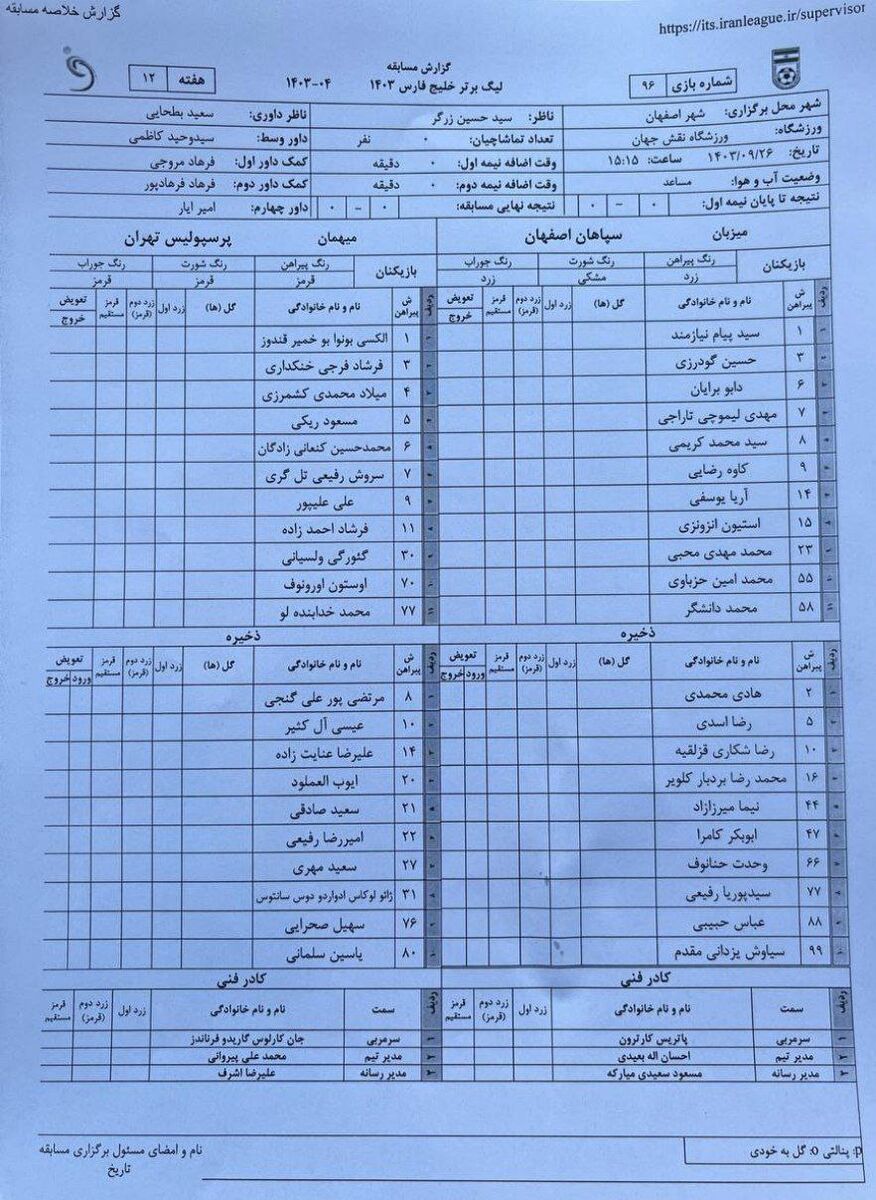 گزارش خلاصه مسابقه
https://its.iranleague.ir/supervisor
گزارش مسابقه
لیگ برتر خلیج فارس ۱۴۰۳ ۰۴-۱۴۰۳
شماره بازی ۹۶
هفته ۱۲
شهر محل برگزاری: شهر اصفهان ناظر: سید حسین زرگر ناظر داوری: سعید بطحایی
ورزشگاه: ورزشگاه نقش جهان تعداد تماشاچیان: ۰ نفر داور وسط: سیدوحید کاظمی
تاریخ: ۱۴۰۳/۰۹/۲۶ ساعت: ۱۵:۱۵ وقت اضافه نیمه اول: ۰ دقیقه کمک داور اول: فرهاد مروجی
وضعیت آب و هوا: مساعد وقت اضافه نیمه دوم: ۰ دقیقه کمک داور دوم: فرهاد فرهادپور
نتیجه تا پایان نیمه اول: ۰ - ۰ نتیجه نهایی مسابقه: ۰ - ۰ داور چهارم: امیر ایار
میزبان سپاهان اصفهان
بازیکنان رنگ پیراهن رنگ شورت رنگ جوراب
زرد مشکی زرد
ردیف ش پیراهن نام و نام خانوادگی گل (ها) زرد اول زرد دوم (قرمز) قرمز مستقیم تعویض خروج
۱ ۱ سید پیام نیازمند
۲ ۳ حسین گودرزی
۳ ۶ دابو برایان
۴ ۷ مهدی لیموچی تاراجی
۵ ۸ سید محمد کریمی
۶ ۹ کاوه رضایی
۷ ۱۴ آریا یوسفی
۸ ۱۵ استیون انزونزی
۹ ۲۳ محمد مهدی محبی
۱۰ ۵۵ محمد امین حزباوی
۱۱ ۵۸ محمد دانشگر
ذخیره
ردیف ش پیراهن نام و نام خانوادگی گل (ها) زرد اول زرد دوم (قرمز) قرمز مستقیم تعویض ورود خروج
۱ ۲ هادی محمدی
۲ ۵ رضا اسدی
۳ ۱۰ رضا شکاری قزلقیه
۴ ۱۶ محمد رضا بردبار کلویر
۵ ۴۴ نیما میرزازاد
۶ ۴۷ ابوبکر کامرا
۷ ۶۶ وحدت حنانوف
۸ ۷۷ سیدپوریا رفیعی
۹ ۸۸ عباس حبیبی
۱۰ ۹۹ سیاوش یزدانی مقدم
کادر فنی
ردیف سمت نام و نام خانوادگی زرد اول زرد دوم (قرمز) قرمز مستقیم
۱ سرمربی پاتریس کارترون
۲ مدیر تیم احسان اله بعیدی
۳ مدیر رسانه مسعود سعیدی مبارکه
میهمان پرسپولیس تهران
بازیکنان رنگ پیراهن رنگ شورت رنگ جوراب
قرمز قرمز قرمز
ردیف ش پیراهن نام و نام خانوادگی گل (ها) زرد اول زرد دوم (قرمز) قرمز مستقیم تعویض خروج
۱ ۱ الکسی بونوا بو خمیر قندوز
۲ ۳ فرشاد فرجی خنکداری
۳ ۴ میلاد محمدی کشمرزی
۴ ۵ مسعود ریکی
۵ ۶ محمدحسین کنعانی زادگان
۶ ۷ سروش رفیعی تل گری
۷ ۹ علی علیپور
۸ ۱۱ فرشاد احمد زاده
۹ ۳۰ گئورگی ولسیانی
۱۰ ۷۰ اوستون اورونوف
۱۱ ۷۷ محمد خدابنده لو
ذخیره
ردیف ش پیراهن نام و نام خانوادگی گل (ها) زرد اول زرد دوم (قرمز) قرمز مستقیم تعویض ورود خروج
۱ ۸ مرتضی پور علی گنجی
۲ ۱۰ عیسی آل کثیر
۳ ۱۴ علیرضا عنایت زاده
۴ ۲۰ ایوب العملود
۵ ۲۱ سعید صادقی
۶ ۲۲ امیررضا رفیعی
۷ ۲۷ سعید مهری
۸ ۳۱ ژائو لوکاس ادواردو دوس سانتوس
۹ ۷۶ سهیل صحرایی
۱۰ ۸۰ یاسین سلمانی
کادر فنی
ردیف سمت نام و نام خانوادگی زرد اول زرد دوم (قرمز) قرمز مستقیم
۱ سرمربی جان کارلوس گاریدو فرناندز
۲ مدیر تیم محمد علی پیروانی
۳ مدیر رسانه علیرضا اشرف
p: پنالتی o: گل به خودی
نام و امضای مسئول برگزاری مسابقه
تاریخ